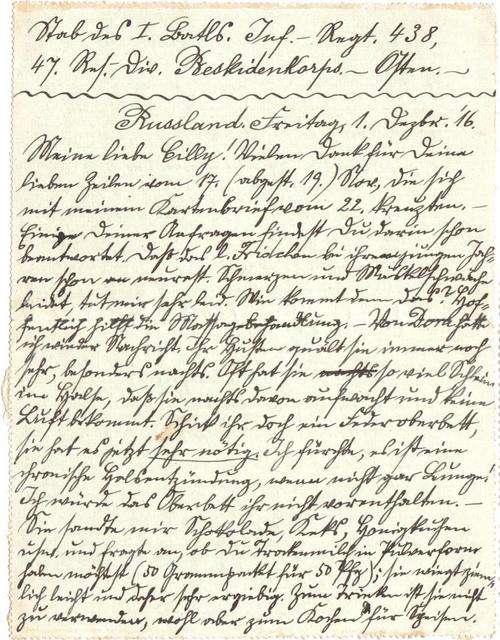 Stab des I. Batls. Inf.- Regt. 438,
47. Res. Div. Beskidenkorps. - Osten. -
Russland. Freitag, 1. Dezbr. '16.
Meine liebe Cilly! Vielen Dank für Deine
lieben Zeilen vom 17. (abgest. 19.) Nov., die sich
mit meinem Kartenbrief vom 22. kreuzten. -
Einige Deiner Anfragen findest Du darin schon
beantwortet. Daß das l. Friedchen bei ihren jungen Jah-
ren schon an neurast. Schmerzen und Muskelschwäche
leidet, tut mir sehr leid. Wie kommt denn das? Hof-
fentlich hilft die Massagebehandlung. - Von Dora hatte
ich wieder Nachricht. Ihr Husten quält sie immer noch
sehr, besonders nachts. Oft hat sie nachts so viel Schleim
im Halse, daß sie nachts davon aufwacht und keine
Luft bekommt. Schick ihr doch ein Federoberbett,
sie hat es jetzt sehr nötig. Ich fürchte, es ist eine
chronische Halsentzündung, wenn nicht gar Lunge!
Ich würde das Oberbett ihr nicht vorenthalten. -
Sie sandte mir Schokolade, Keks, Honigkuchen
usw. und fragte an, ob Du Trockenmilch in Pulverform
haben möchtest (50 Grammpaket für 50 Pfg); sie wiegt ziem-
lich leicht und daher sehr ergiebig. Zum Trinken ist sie nicht
zu verwenden, wohl aber zum Kochen für Speisen.